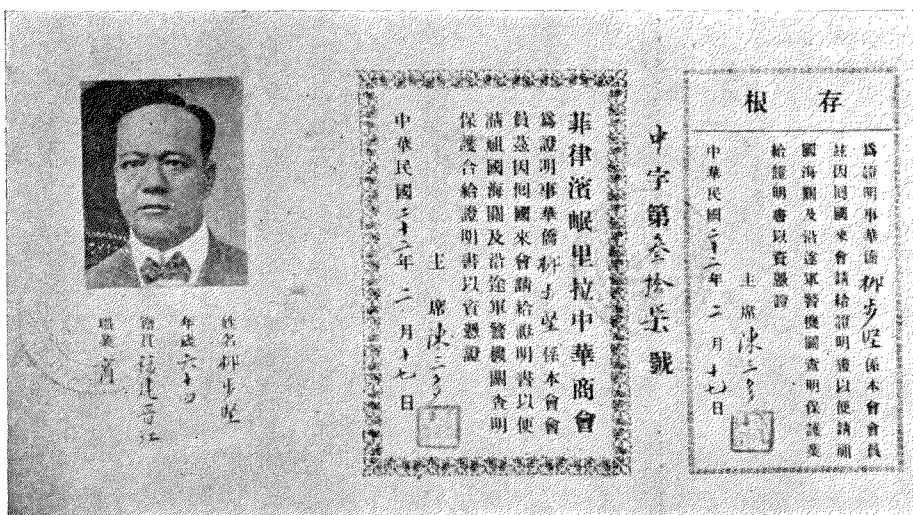 存根
為證明事華僑柳步堅係本會會員
茲因回國來會請給證明書以便請祖
國海關及沿途軍警機關查明保護業
給證明書以資憑證
主席 陳三多
中華民國二十二年二月十七日
中字第叁拾柒號
菲律濱岷里拉中華商會
為證明事華僑柳步堅係本會會
員茲因回國來會請給證明書以便
請祖國海關及沿途軍警機關查明
保護合給證明書以資憑證
主席 陳三多
中華民國二十二年二月十七日
姓名 柳步堅
年歲 六十
籍貫 福建晉江
職業 商